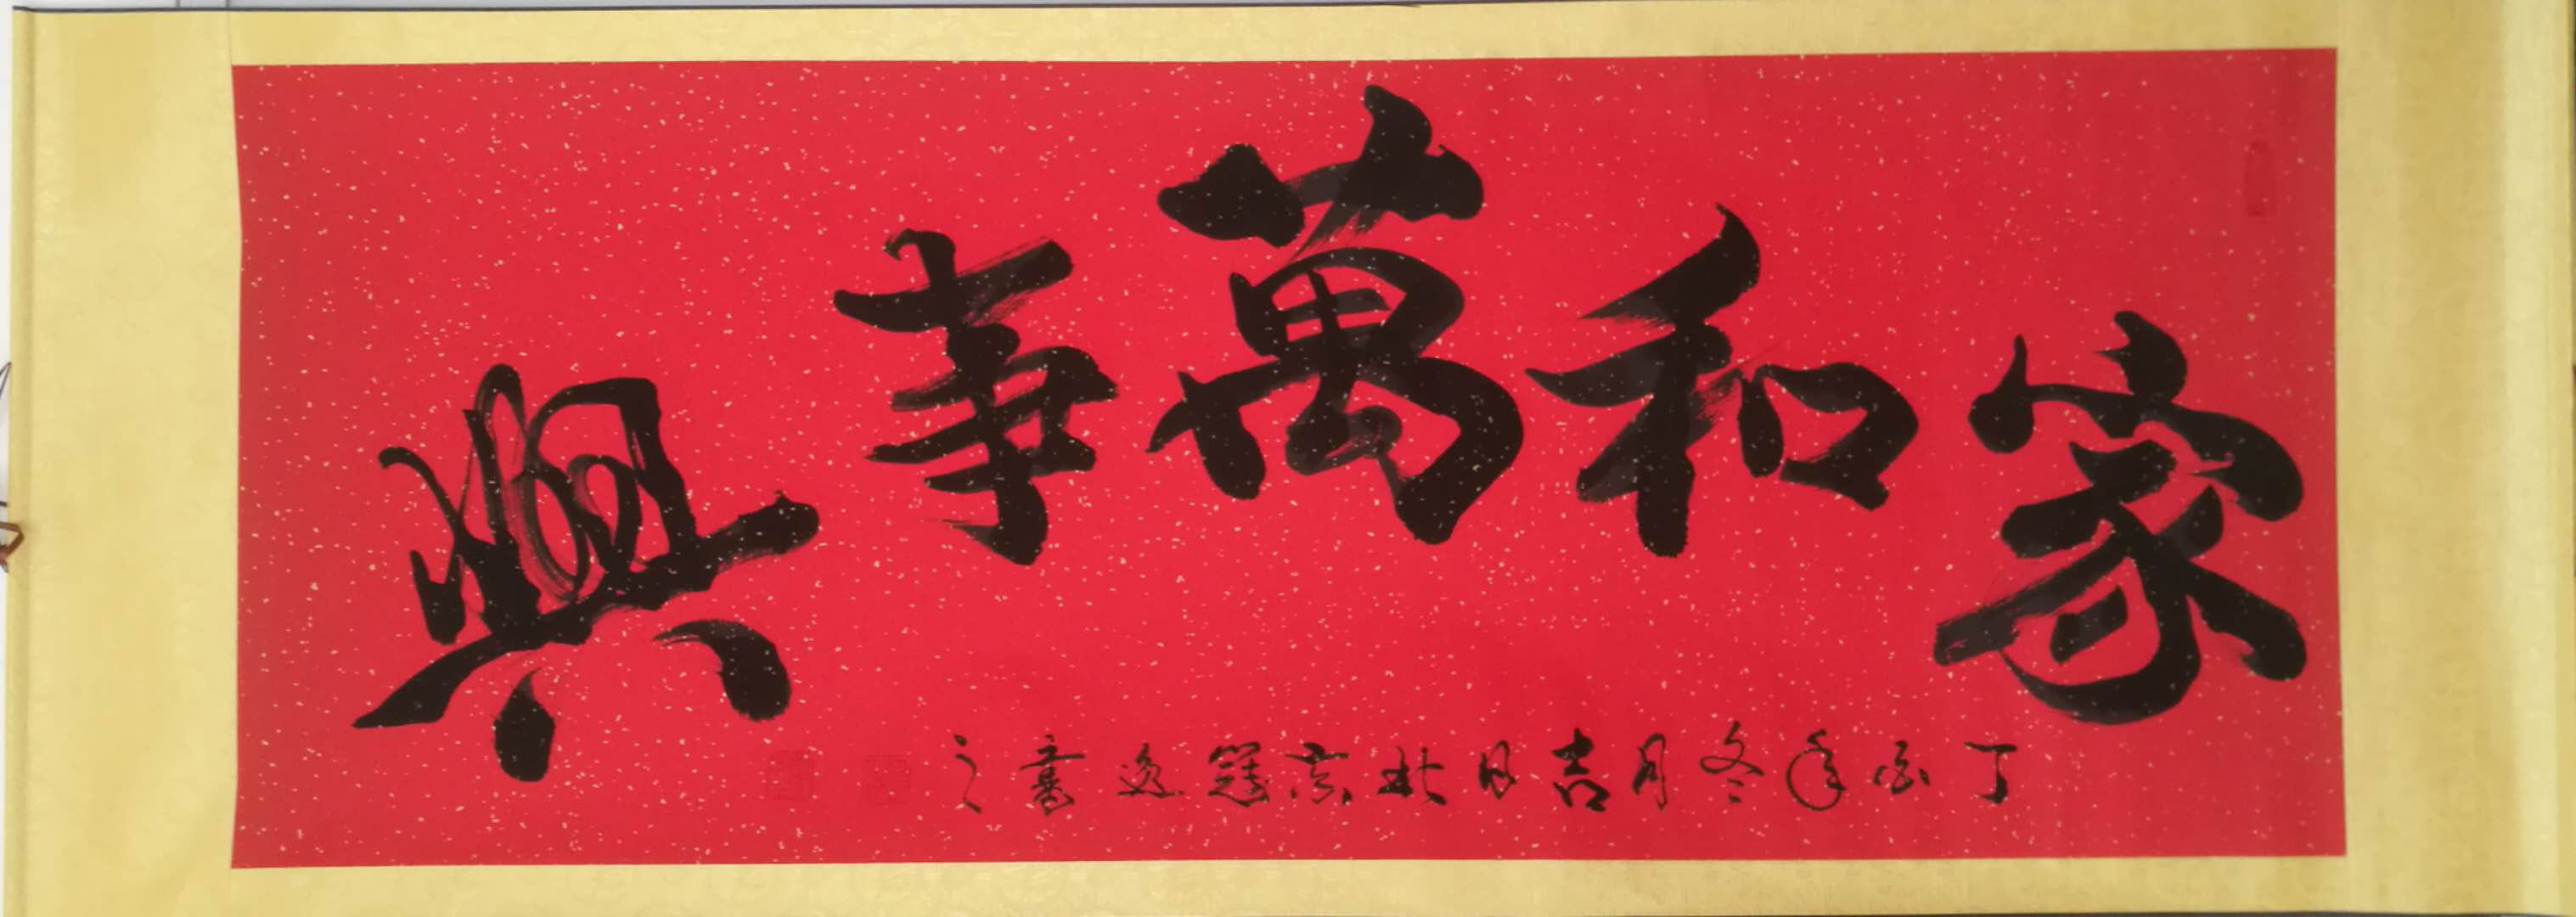 家和萬事興
丁酉年冬月吉日北京 逸書之